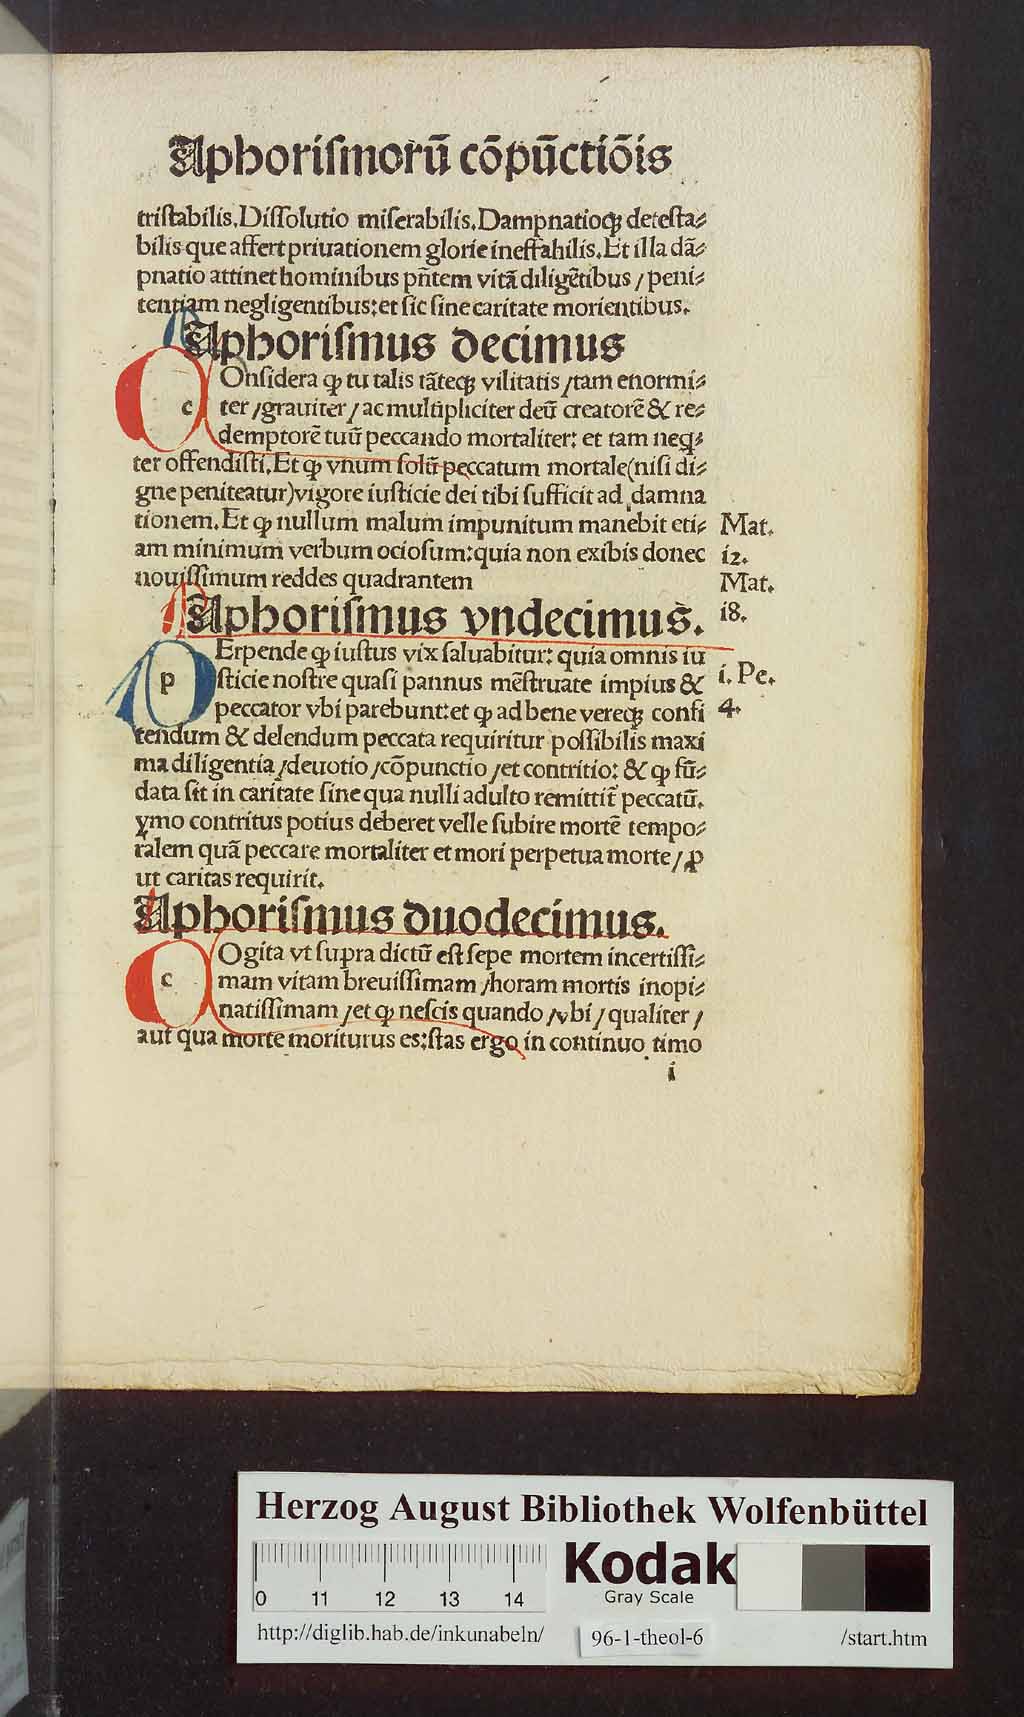 Aphoriſmorū cōpūctiōis
triſtabilis. Diſſolutio miſerabilis. Dampnatioqꝫ deteſta⸗
bilis que affert priuationem glorie ineffahilis. Et illa dā⸗
pnatio attinet hominibus pñtem vitā diligētibus / peni⸗
tentiam negligentibus: et ſic ſine caritate morientibus.
Aphoriſmus decimus
c Onſidera ꝙ tu talis tāteqꝫ vilitatis / tam enormi⸗
ter / grauiter / ac multipliciter deū creatorē & re⸗
demptorē tuū peccando mortaliter: et tam neq̃⸗
ter offendiſti. Et ꝙ vnum ſolū peccatum mortale (niſi di⸗
gne peniteatur) vigore iuſticie dei tibi ſufficit ad damna
tionem. Et ꝙ nullum malum impunitum manebit eti⸗
am minimum verbum ocioſum: quia non exibis donec
nouiſſimum reddes quadrantem
Mat.
i2.
Mat.
i8.
Aphoriſmus vndecimus.
p Erpende ꝙ iuſtus vix ſaluabitur: quia omnis iu
ſticie noſtre quaſi pannus mēſtruate impius &
peccator vbi parebunt: et ꝙ ad bene vereqꝫ confi
tendum & delendum peccata requiritur poſſibilis maxi
ma diligentia / deuotio / cōpunctio / et contritio: & ꝙ fū⸗
data ſit in caritate ſine qua nulli adulto remittit᷑ peccatū.
ymo contritus potius deberet velle ſubire mortē tempo⸗
ralem quā peccare mortaliter et mori perpetua morte / ꝓ
ut caritas requirit.
i. Pe.
4.
Aphoriſmus duodecimus.
c Ogita vt ſupra dictū eſt ſepe mortem incertiſſi⸗
mam vitam breuiſſimam / horam mortis inopi⸗
natiſſimam / et ꝙ neſcis quando / vbi / qualiter /
aut qua morte moriturus es: ſtas ergo in continuo timo
i
Herzog August Bibliothek Wolfenbüttel
0 11 12 13 14
Kodak
Gray Scale
http://diglib.hab.de/inkunabeln/ 96-1-theol-6 /start.htm